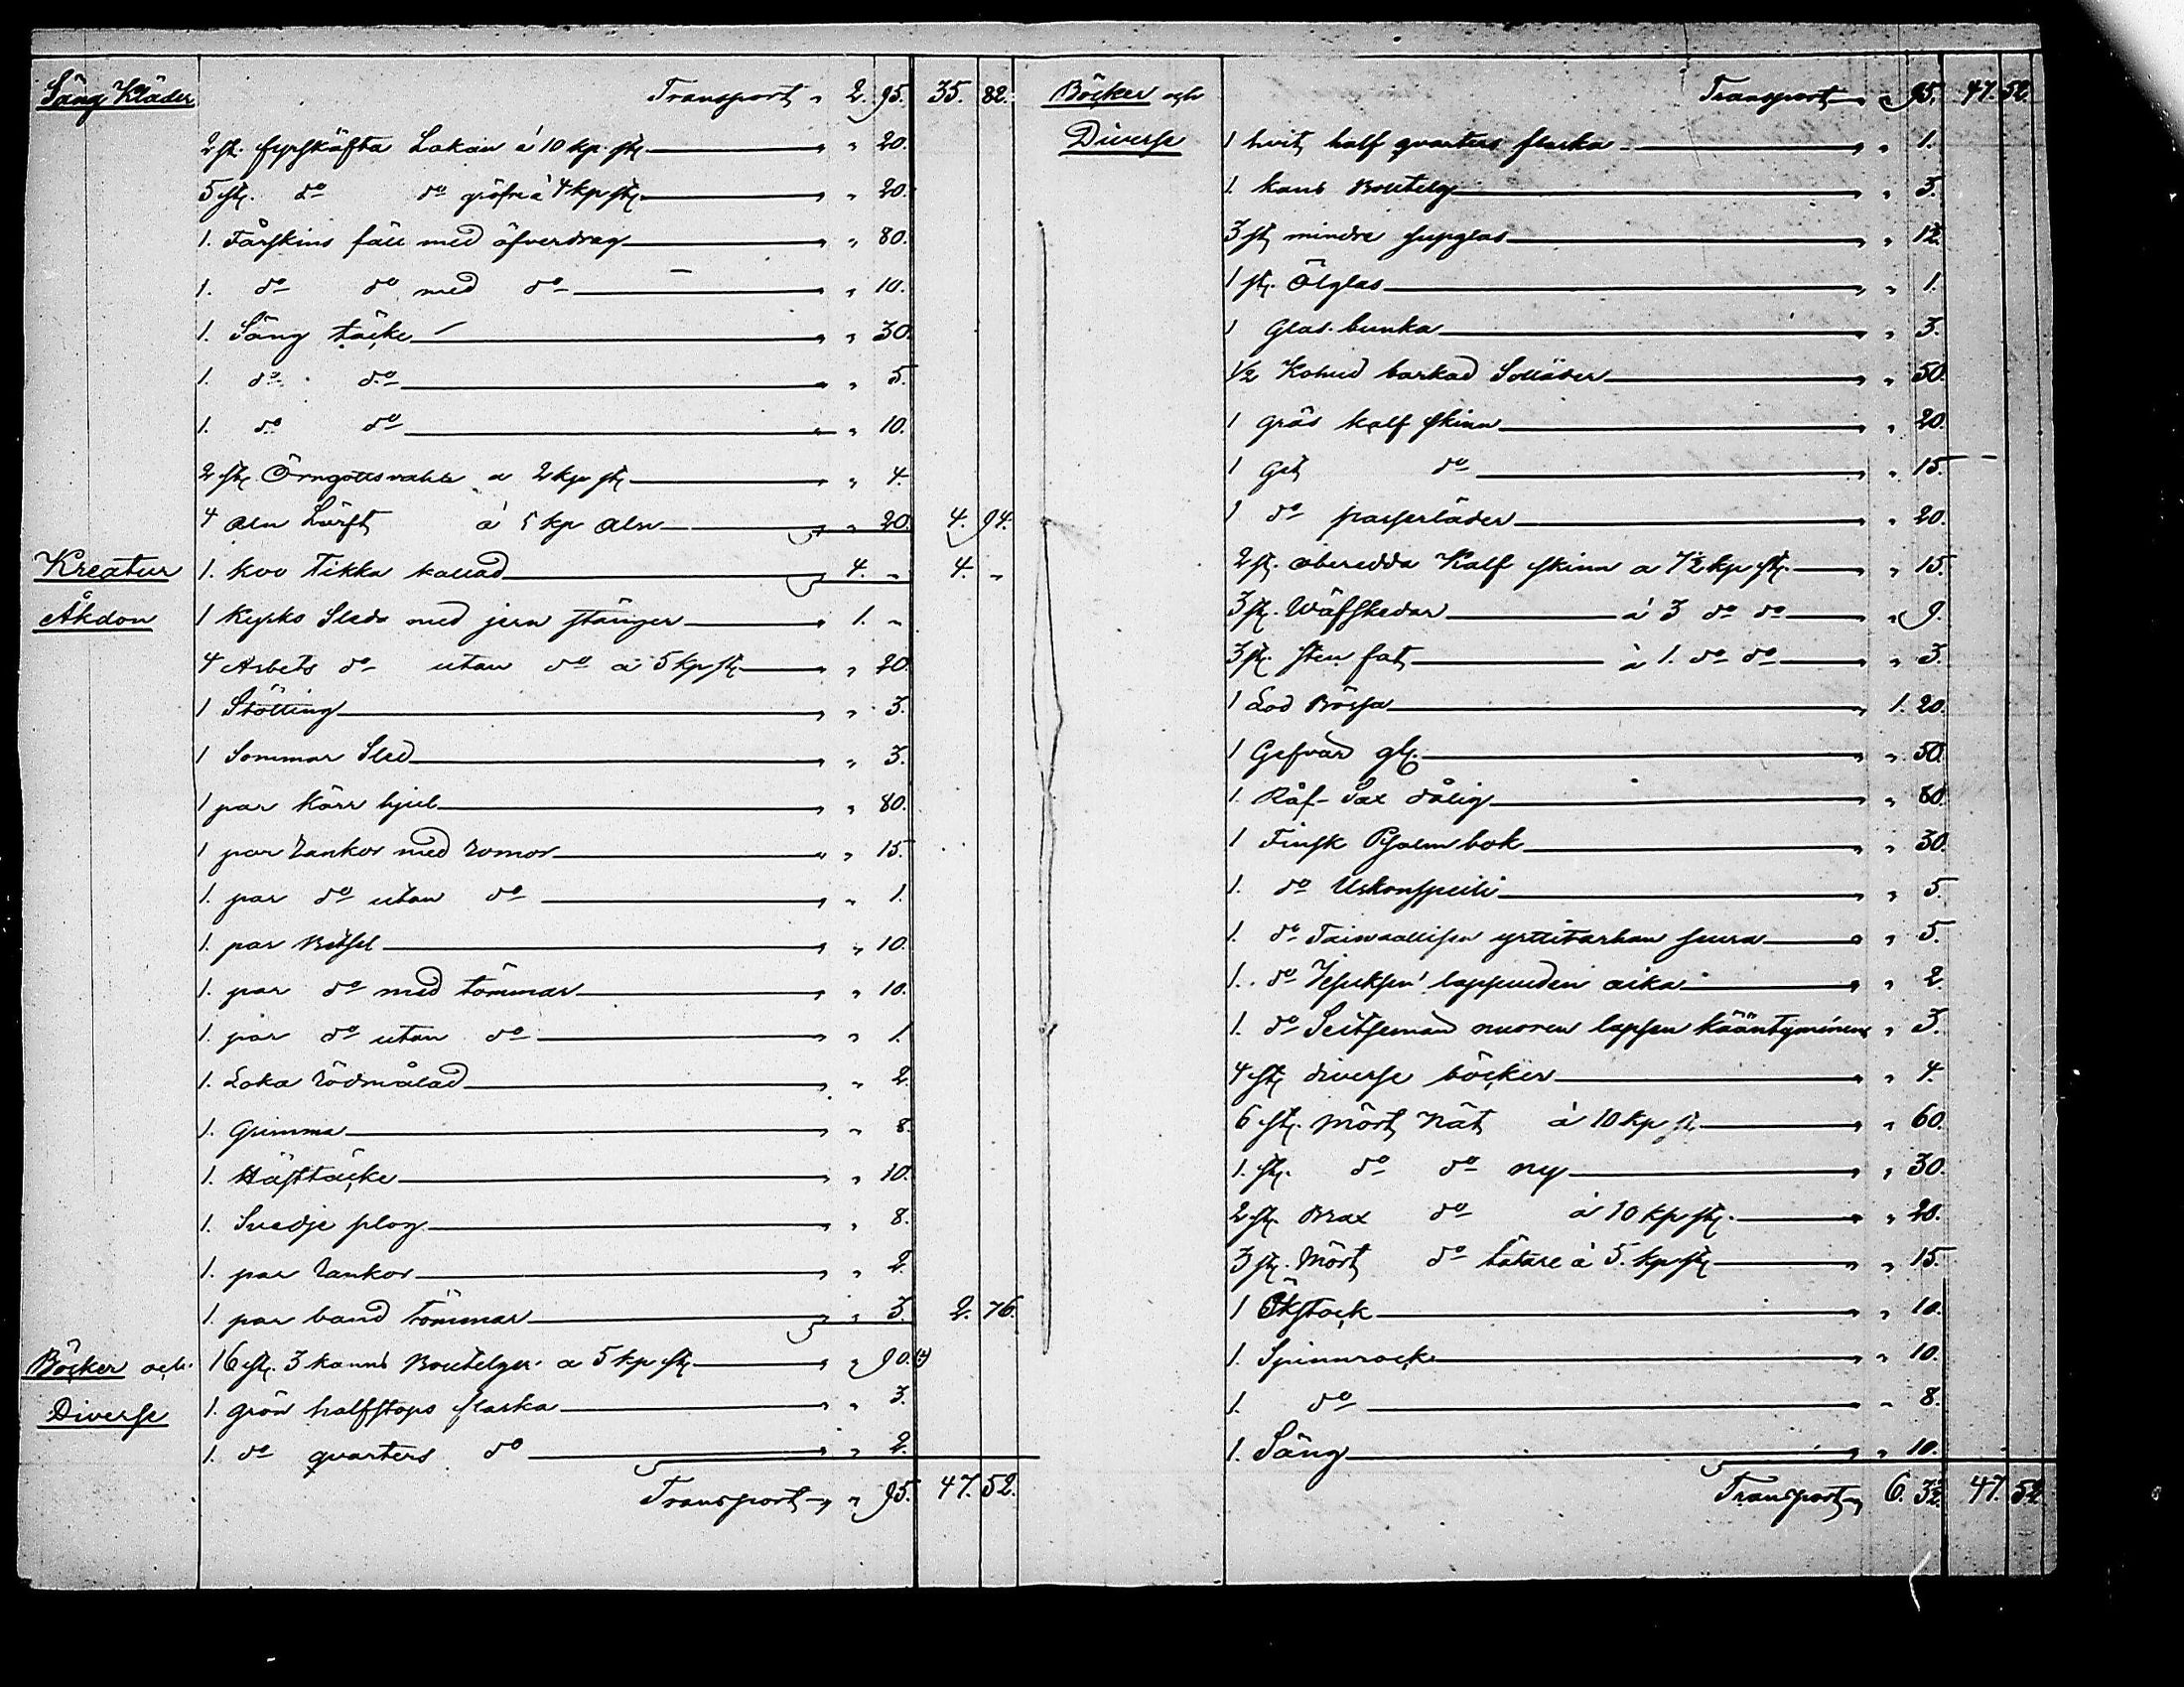 Säng Kläder Transport „ 2. 95. 35. 82.
2 st. fyrskäfta Lakan á 10 kp. st. „ 20.
5 st. do do gröfre á 4 kp st. „ 20.
1. Fårskins fäll med öfverdrag „ 80.
1. do do med do „ 10.
1. Säng täcke „ 30.
1. do do „ 5.
1. do do „ 10.
2 st. Örngottsvahls a 2 kp st. „ 4.
4 aln Lärft á 5 kp aln „ 20. 4. 94.
Kreatur 1. koo Tikka kallad 4. „ 4. „
Åkdon 1 Kyrko Släda med jern stänger 1. „
4 Arbets do utan do a 5 kp st. „ 20.
1 Stötting „ 3.
1 Sommar Släd „ 3.
1 par kärr hjul „ 80.
1 par rankor med romor „ 15.
1. par do utan do „ 1.
1. par Betsel „ 10.
1. par do med tömmar „ 10.
1. par do utan do „ 1.
1. Loka rödmålad „ 2.
1. Grimma „ 8.
1. Hästtäcke „ 10.
1. Svedje plog „ 8.
1. par rankor „ 2.
1. par band tömmar „ 3. 2. 76.
Böcker och 16 st. 3 kanns Boutelger a 5 kp st. „ 90.
Diverse 1. grön halfstops flaska „ 3.
1. do quarters do „ 2.
Transport „ „ 95. 47. 52.
Böcker och Transport „ 95. 47. 52.
Diverse 1 hvit half quarters flaska „ 1.
1. kans Boutelg „ 3.
3 st mindre supglas „ 12.
1 st. Ölglas „ 1.
1 Glas bunka „ 3.
1/2 Kohud barkad Solläder „ 50.
1 Gräs kalf skinn „ 20.
1 Get do „ 15.
1 do passerläder „ 20.
2 st. oberedda Kalf skinn a 7½ kp st. „ 15.
3 st. Wäfskedar á 3 do do „ 9.
3 st. sten fat á 1. do do „ 3.
1 Lod Bössa 1. 20.
1 Gefvär gl. „ 50.
1. Räf-Sax dålig „ 80.
1 Finsk Psalmbok „ 30.
1. do Uskonspeili „ 5.
1. do Taiwaallisen yrttitarhan seura „ 5.
1. do lappuuden aika „ 2.
1. do Seitsemän nuoren lapsen kääntyminen „ 3.
4 st diverse böcker „ 4.
6 st. Mört Nät á 10 kp st „ 60.
1. st. do do ny „ 30.
2 st. Brax do á 10 kp st. „ 20.
3 st. Mört do tätare á 5. kp st „ 15.
1 Ökstock „ 10.
1. Spinnrock „ 10.
1. do „ 8.
1. Säng „ 10.
Transport „ 6. 32. 47. 52.